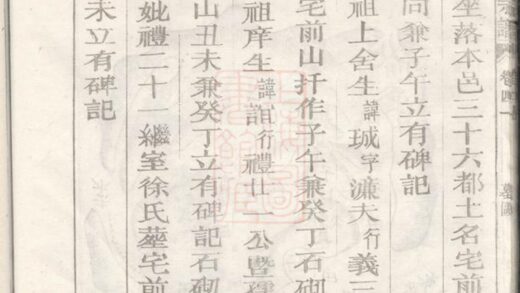 譜 卷四十 墓圖
坐落本邑三十六都土名宅前
向兼子午立有碑記
祖上舍生諱珹字濂夫行義三
宅前山扦作子午兼癸丁石砌
祖庠生諱誼行禮廿一公暨孺
山丑未兼癸丁立有碑記石砌
妣禮二十一繼室徐氏塟宅前
未立有碑記